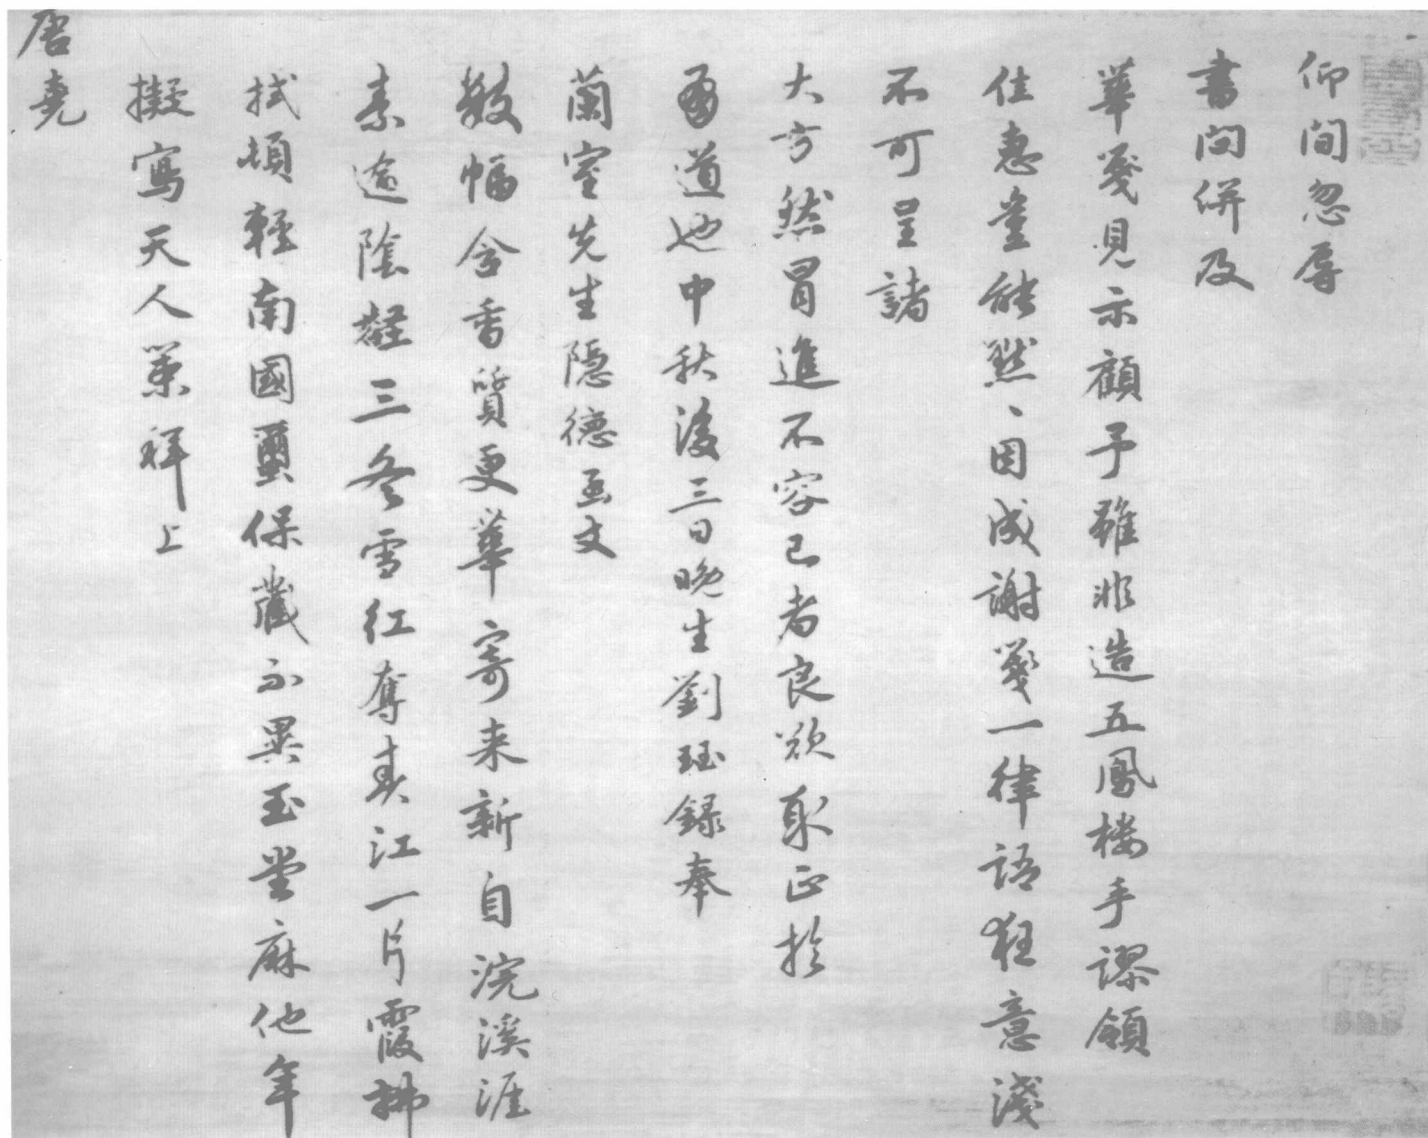 仰間忽辱
書問併及
華箋見示顧予雖非造五鳳樓手謬領
佳惠豈能默、因成謝箋一律語狂意淺
不可呈諸
大方然冒進不容已者良欲取正於
有道也中秋後三日晚生劉珏錄奉
蘭室先生隱德函丈
數幅含香質更華寄来新自浣溪涯
素逾陰壑三冬雪紅奪春江一片霞拂
拭頓輕南國璽保藏不異玉堂麻他年
擬寫天人策拜上
唐堯